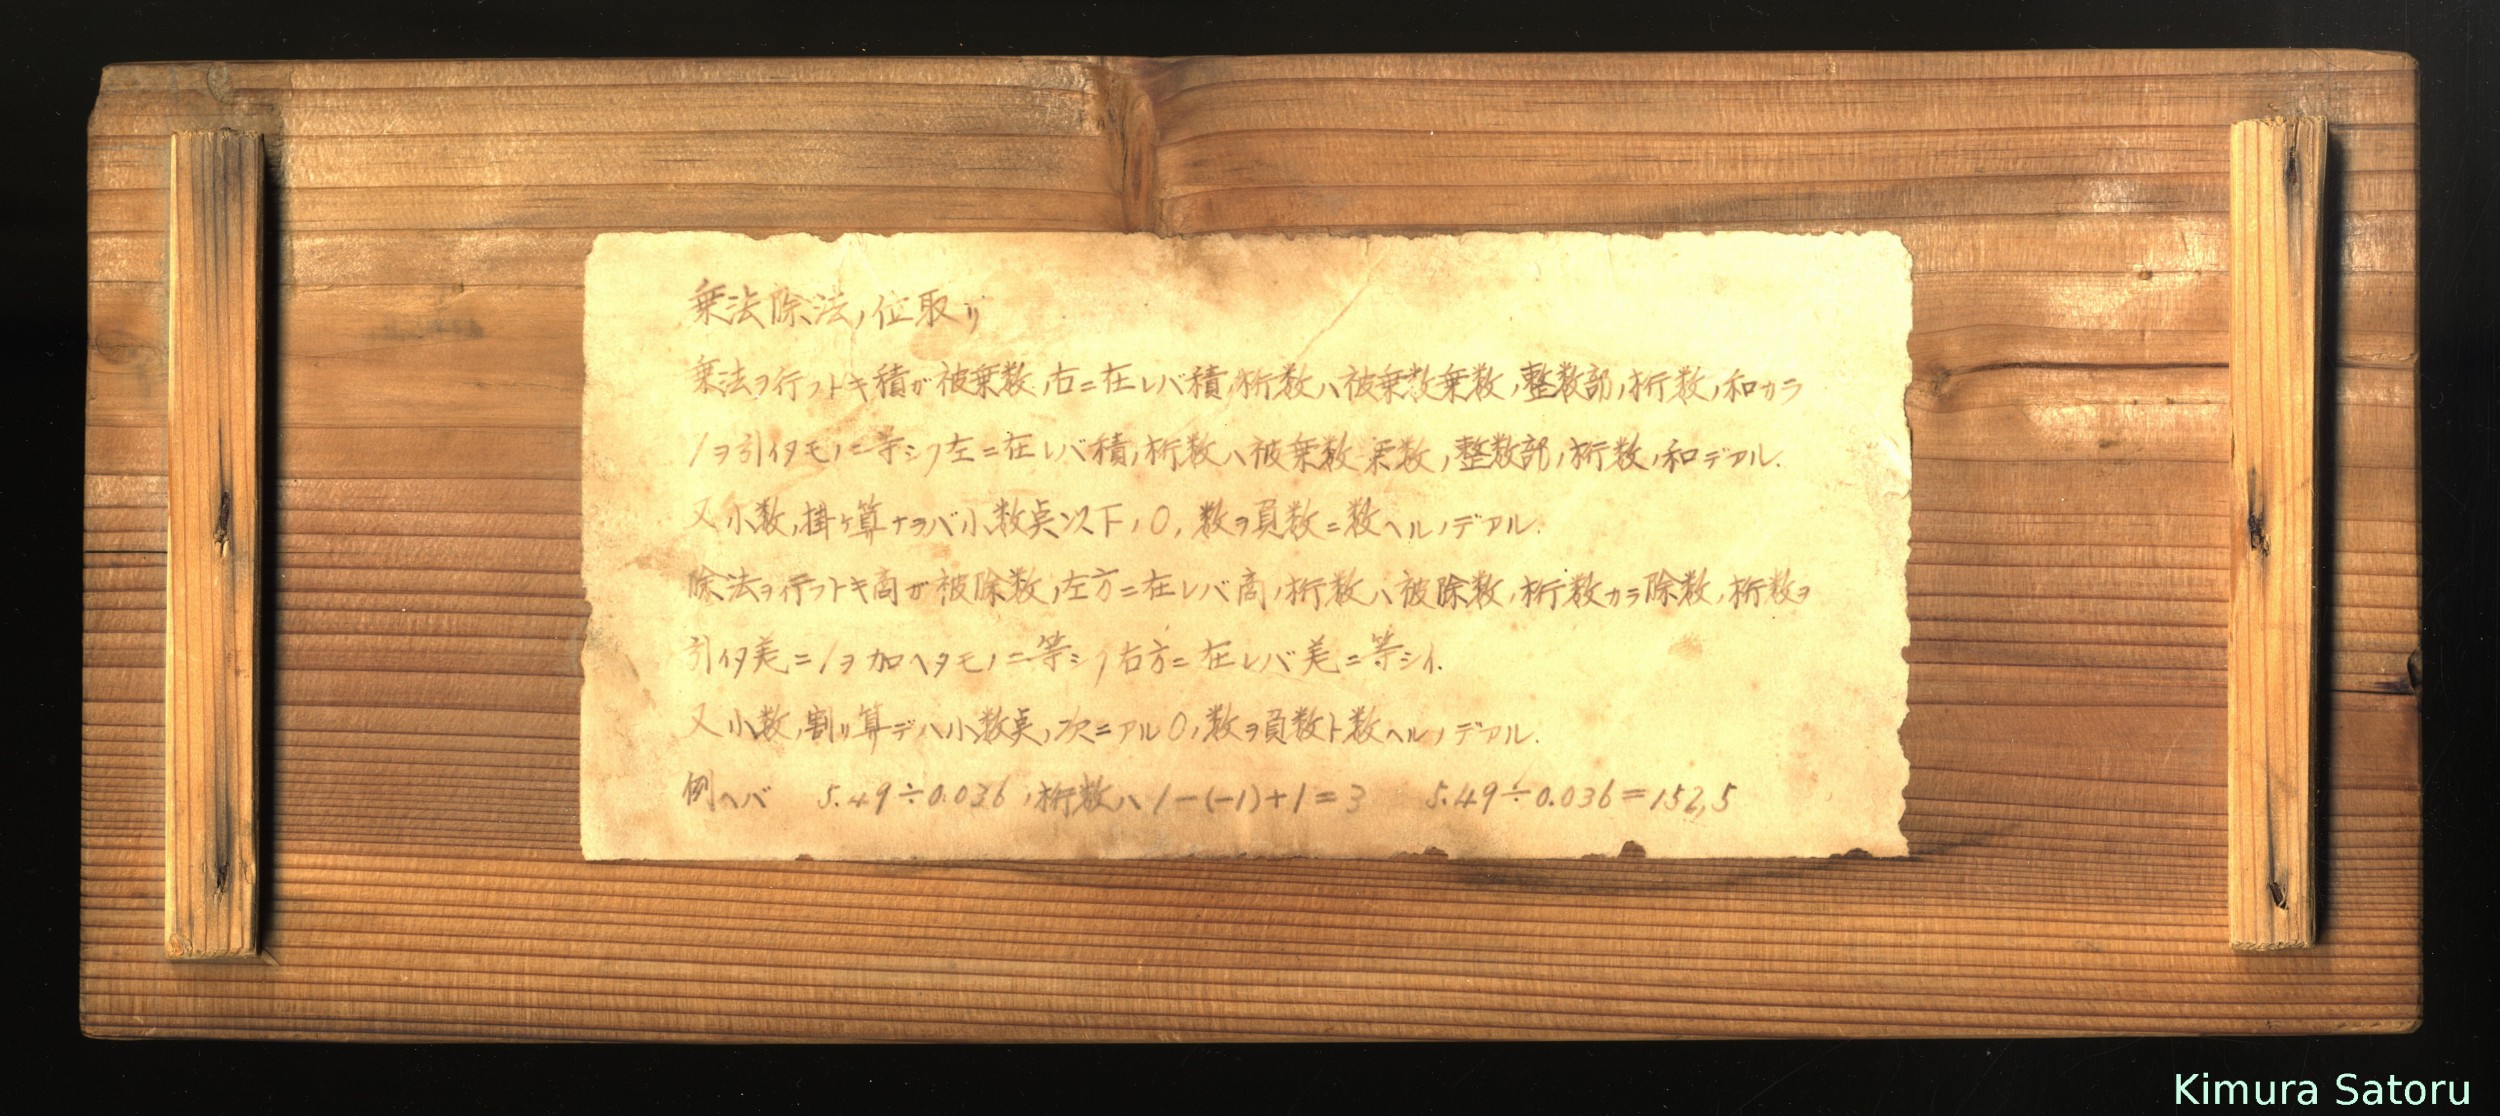 乗法除法ノ位取リ
乗法ヲ行フトキ積ガ被乗数ノ右ニ在レバ積ノ桁数ハ被乗数乗数ノ整数部ノ桁数ノ和カラ
1ヲ引イタモノニ等シク左ニ在レバ積ノ桁数ハ被乗数乗数ノ整数部ノ桁数ノ和デアル.
又小数ノ掛ケ算ナラバ小数点以下ノ0ノ数ヲ負数ニ数ヘルノデアル.
除法ヲ行フトキ商ガ被除数ノ左方ニ在レバ商ノ桁数ハ被除数ノ桁数カラ除数ノ桁数ヲ
引イタ差ニ1ヲ加ヘタモノニ等シク右方ニ在レバ差ニ等シイ.
又小数ノ割リ算デハ小数点ノ次ニアル0ノ数ヲ負数ト数ヘルノデアル.
例ヘバ 5.49÷0.036ノ桁数ハ1-(-1)+1=3 5.49÷0.036=152,5
Kimura Satoru